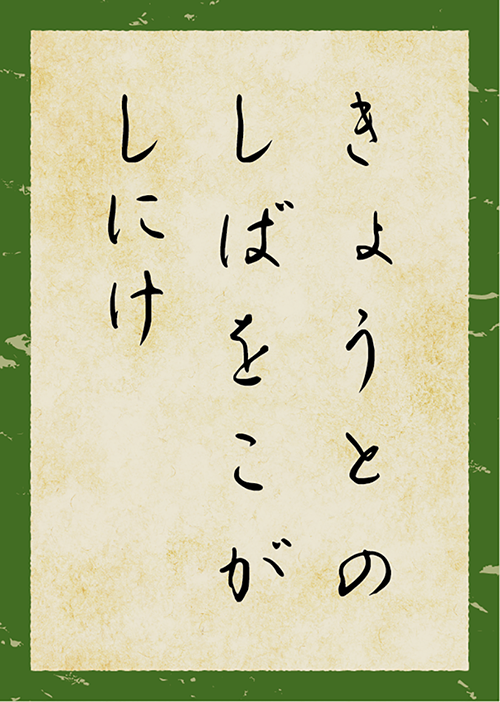 きょうとの
しばをこが
しにけ